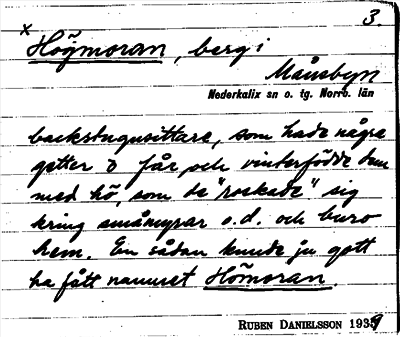 3.
x
Högmoran, berg i
Månsbyn
Nederkalix sn o. tg. Norrb. län
backstugusittare, som hade några
getter o får och vinterfödde dem
med hö, som de "roskade" sig
kring småmyrar o.d. och buro
hem. En sådan kunde ju gott
ha fått namnet Hömoran.
RUBEN DANIELSSON 1939